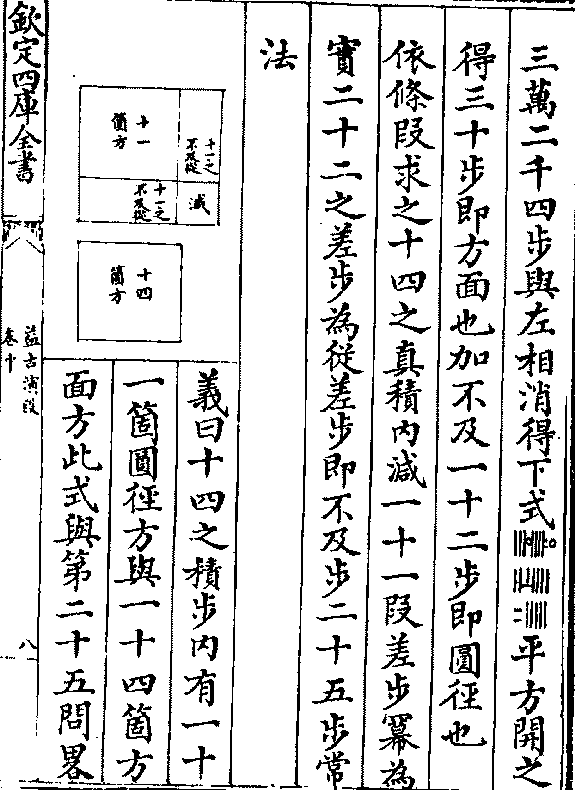 三萬二千四步與左相消得下式平方開之
得三十步即方面也加不及一十二步即圓徑也
依條段求之十四之真積内減一十一段差步冪為
實二十二之差步為從差步即不及步二十五步常
法
十一之不及從
減
十一箇方
十一之不及從
十四箇方
義曰十四之積步内有一十
一箇圓徑方與一十四箇方
面方此式與第二十五問畧
欽定四庫全書
益古演段
卷中
八